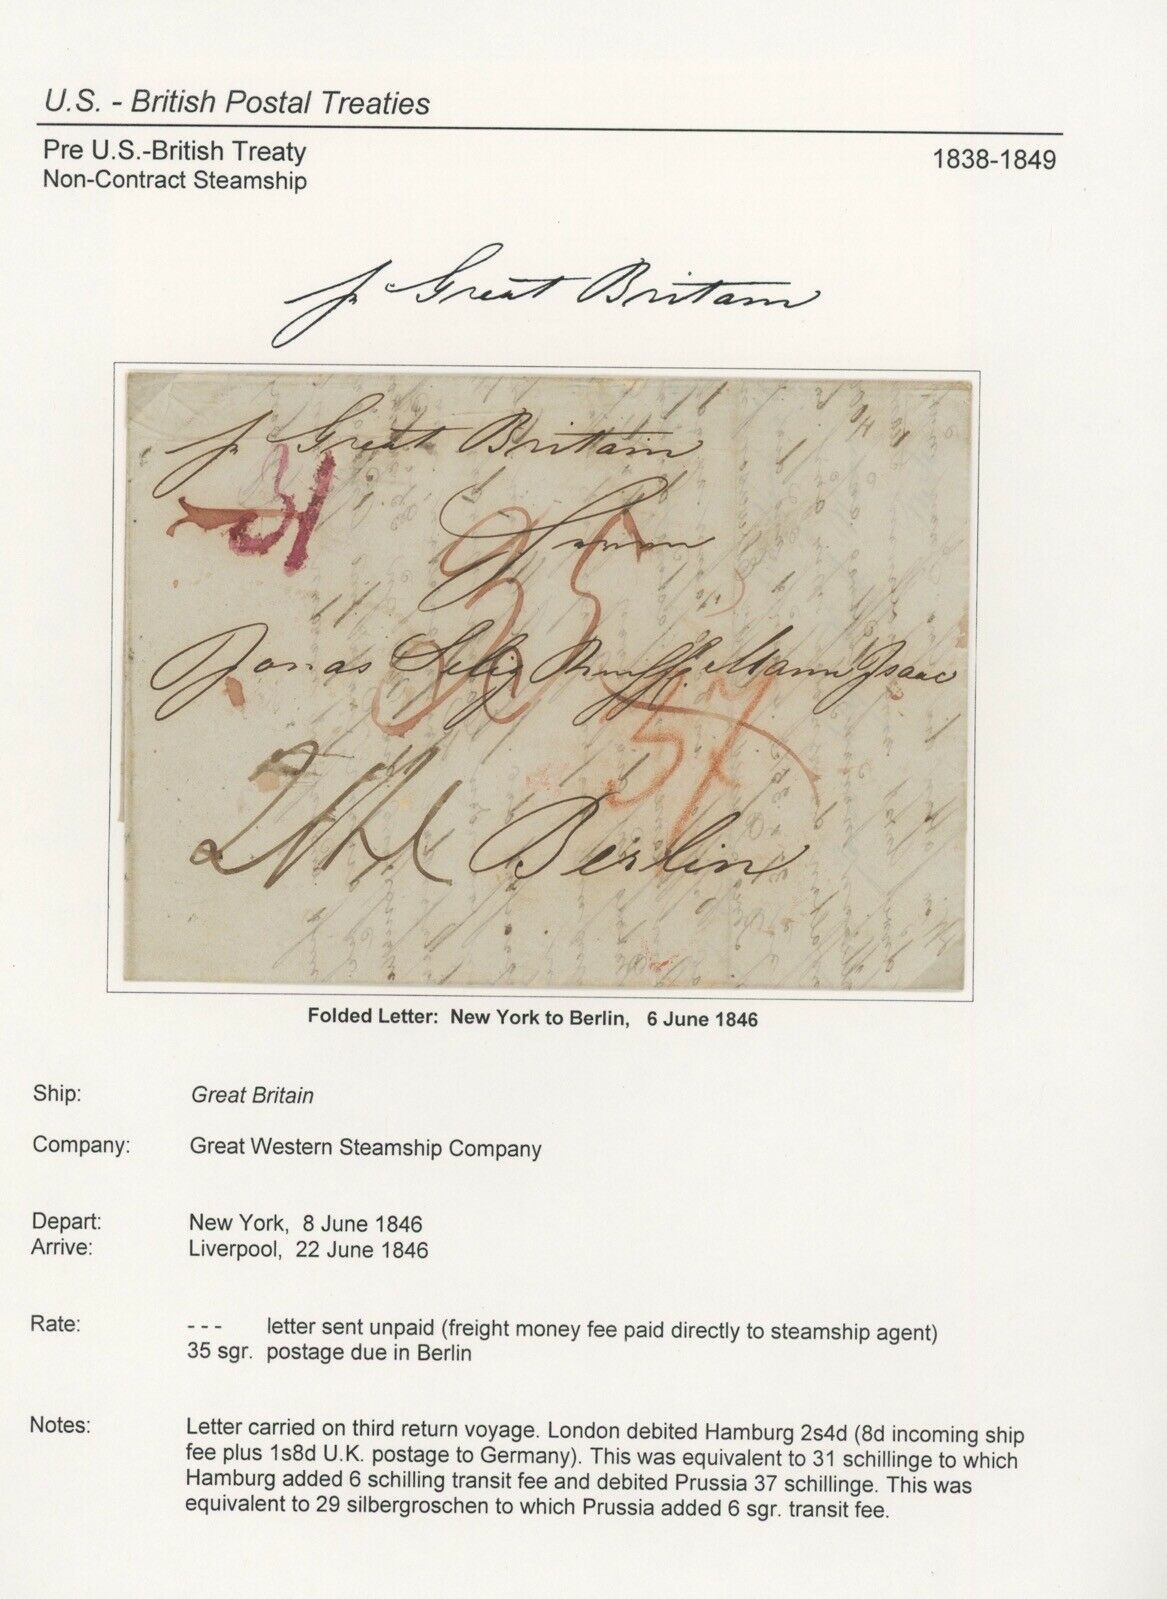 U.S. - British Postal Treaties
Pre U.S.-British Treaty
1838-1849
Non-Contract Steamship
pr Great Britain
pr Great Britain
31
35
Jonas Selig Mann Isaac
37
Berlin
Folded Letter: New York to Berlin, 6 June 1846
Ship: Great Britain
Company: Great Western Steamship Company
Depart: New York, 8 June 1846
Arrive: Liverpool, 22 June 1846
Rate: - - - letter sent unpaid (freight money fee paid directly to steamship agent)
35 sgr. postage due in Berlin
Notes: Letter carried on third return voyage. London debited Hamburg 2s4d (8d incoming ship
fee plus 1s8d U.K. postage to Germany). This was equivalent to 31 schillinge to which
Hamburg added 6 schilling transit fee and debited Prussia 37 schillinge. This was
equivalent to 29 silbergroschen to which Prussia added 6 sgr. transit fee.